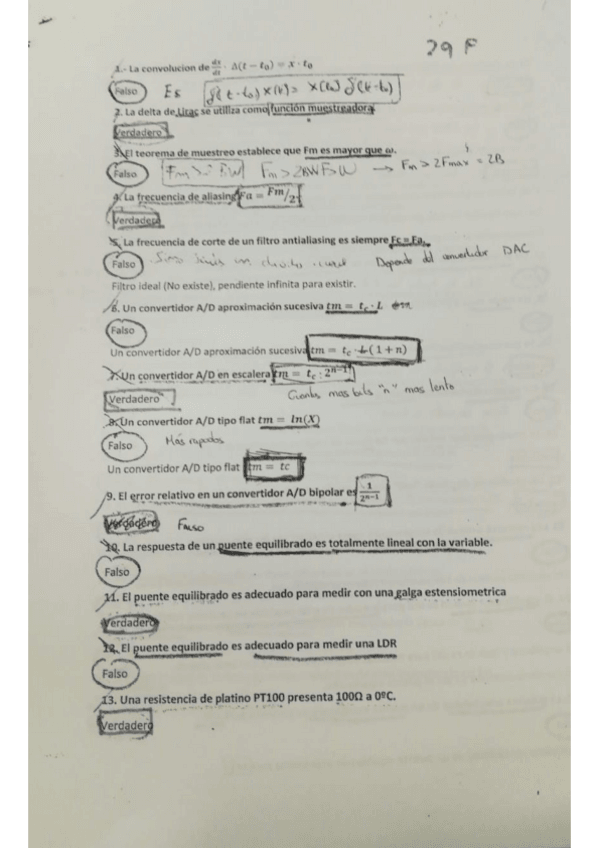 29 F
1.- La convolucion de dx/dt · Δ(t − t₀) = x · t₀
Falso Es δ(t-t₀) x(t) = x(t₀) δ(t-t₀)
2. La delta de Dirac se utiliza como función muestreadora
Verdadero
3. El teorema de muestreo establece que Fm es mayor que ω.
Falso Fm > 2BW → Fm > 2Fmax = 2B
4. La frecuencia de aliasing Fa = Fm/2
Verdadera
5. La frecuencia de corte de un filtro antialiasing es siempre Fc = Fa.
Falso Depende del convertidor DAC
Filtro ideal (No existe), pendiente infinita para existir.
6. Un convertidor A/D aproximación sucesiva tm = tc · L
Falso
Un convertidor A/D aproximación sucesiva tm = tc (1 + n)
7. Un convertidor A/D en escalera tm = tc · 2ⁿ⁻¹
Verdadero Cuantos mas bits "n" mas lento
8. Un convertidor A/D tipo flat tm = ln(X)
Falso Más rapados
Un convertidor A/D tipo flat tm = tc
9. El error relativo en un convertidor A/D bipolar es 1/2ⁿ⁻¹
Verdadero Falso
10. La respuesta de un puente equilibrado es totalmente lineal con la variable.
Falso
11. El puente equilibrado es adecuado para medir con una galga estensiometrica
Verdadero
12. El puente equilibrado es adecuado para medir una LDR
Falso
13. Una resistencia de platino PT100 presenta 100Ω a 0ºC.
Verdadero